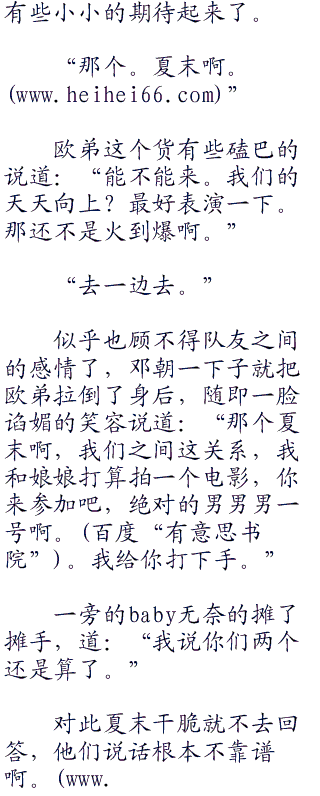 有些小小的期待起来了。
“那个。夏末啊。
(www.heihei66.com)”
欧弟这个货有些磕巴的
说道：“能不能来。我们的
天天向上？最好表演一下。
那还不是火到爆啊。”
“去一边去。”
似乎也顾不得队友之间
的感情了，邓朝一下子就把
欧弟拉倒了身后，随即一脸
谄媚的笑容说道：“那个夏
末啊，我们之间这关系，我
和娘娘打算拍一个电影，你
来参加吧，绝对的男男男一
号啊。(百度“有意思书
院”)。我给你打下手。”
一旁的baby无奈的摊了
摊手，道：“我说你们两个
还是算了。”
对此夏末干脆就不去回
答，他们说话根本不靠谱
啊。(www.